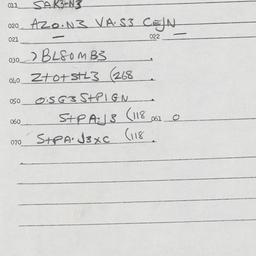 011 SAK3+N3
020 AZO.N3 VA.S3 CEJN
021 — 022 —
030 >BL8OMB3 .
040 Z+O+S+L3 (268
050 O.SG3S+PIGN
060 S+PA:J3 (118 061 0
070 S+PA.J3XC (118 .